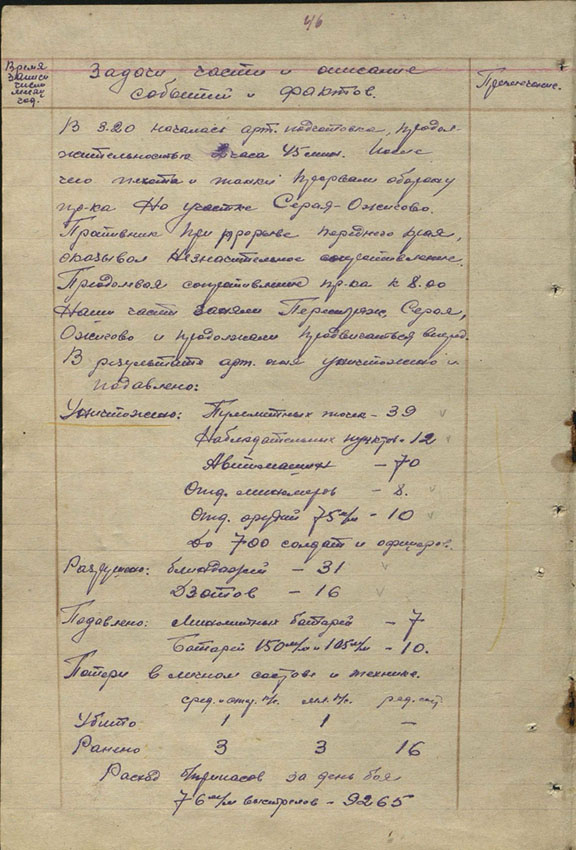 46
Время
записи
число
месяц
год.
Задачи части и описание
событий и фактов.
Примечание.
В 3.20 началась арт. подготовка, продол-
жительностью 2 часа 45 мин. После
чего пехота и танки прорвали оборону
пр-ка на участке Серая-Ожисово.
Противник при прорыве переднего края,
оказывал незначительное сопротивление.
Преодолевая сопротивление пр-ка к 8.00
Наши части заняли Серая,
Ожисово и продолжали продвигаться вперед.
В результате арт. огня уничтожено и
подавлено:
Уничтожено: Пулеметных точек – 39
Наблюдательных пунктов – 12
Автомашин – 70
Отд. минометов – 8.
Отд. орудий 75 м/м – 10
До 700 солдат и офицеров.
Разрушено: блиндажей – 31
Дзотов – 16
Подавлено: Минометных батарей – 7
Батарей 150 м/м и 105 м/м – 10.
Потери в личном составе и технике.
мл. н/с. ряд. сост.
Убито 1 1 –
Ранено 3 3 16
Расход б/припасов за день боя
76 м/м выстрелов – 9265